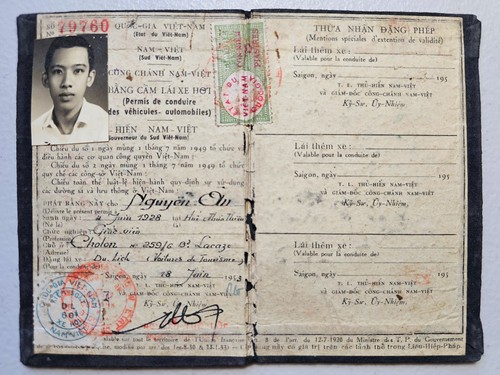 79760
QUỐC-GIA VIỆT-NAM
(Etat du Việt-Nam)
NAM - VIỆT
(Sud Việt-Nam)
CÔNG CHÁNH NAM-VIỆT
BẰNG CẦM LÁI XE HƠI
(Permis de conduire
des véhicules automobiles)
HIẾN NAM-VIỆT
Gouverneur du Sud Việt-Nam)
Chiếu dụ số 1 ngày 1 tháng 7 năm 1949 tổ chức và
điều hành các cơ quan công quyền Việt-Nam;
Chiếu dụ số 2 ngày 1 tháng 7 năm 1949 tổ chức
quy chế các công-sở Việt-Nam;
Chiếu toàn thể luật-lệ hiện-hành quy-định sự sử-dụng
các đường sá và sự lưu thông ở Việt-Nam.
PHÁT BẰNG NÀY CHO Nguyễn Ấn
(Délivre le présent permis à)
Sinh ngày 4 Juin 1928 tại Huế Thừa Thiên
Chức nghiệp Giáo viên
(Profession)
Chỗ ở Cholon n° 259/6 Lacaze
Để lái xe Du Lịch (Voitures de Tourisme)
(Pour la conduite)
Saigon, ngày 28 Juin 1953
T. L. THỦ-HIẾN NAM-VIỆT
VÀ GIÁM-ĐỐC CÔNG-CHÁNH NAM-VIỆT
Kỹ-Sư, Ủy-Nhiệm,
THỪA NHẬN ĐẶNG PHÉP
(Mentions spéciales d'extention de validité)
Lái thêm xe:
(Valable pour la conduite de)
Saigon, ngày 195
T. L. THỦ-HIẾN NAM-VIỆT
VÀ GIÁM-ĐỐC CÔNG-CHÁNH NAM-VIỆT
Kỹ-Sư, Ủy-Nhiệm,
Lái thêm xe:
(Valable pour la conduite de)
Saigon, ngày 195
T. L. THỦ-HIẾN NAM-VIỆT
VÀ GIÁM-ĐỐC CÔNG-CHÁNH NAM-VIỆT
Kỹ-Sư, Ủy-Nhiệm,
Lái thêm xe:
(Valable pour la conduite de)
Saigon, ngày 195
T. L. THỦ-HIẾN NAM-VIỆT
VÀ GIÁM-ĐỐC CÔNG-CHÁNH NAM-VIỆT
Kỹ-Sư, Ủy-Nhiệm,